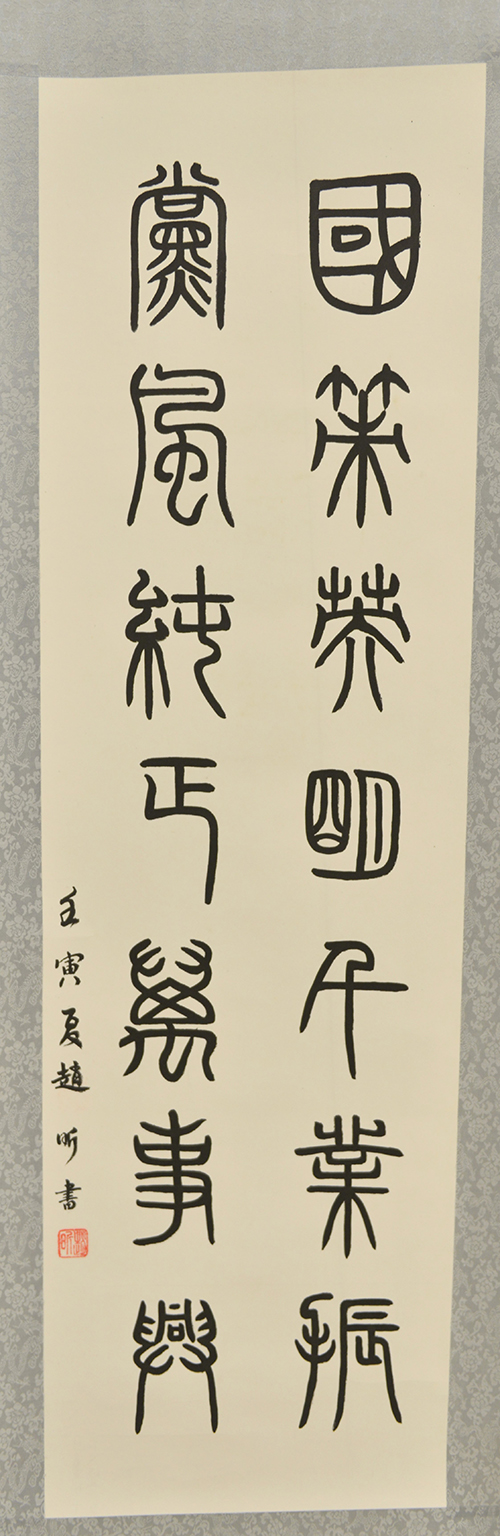 國策英明千業振
黨風純正萬事興
壬寅夏趙昕書